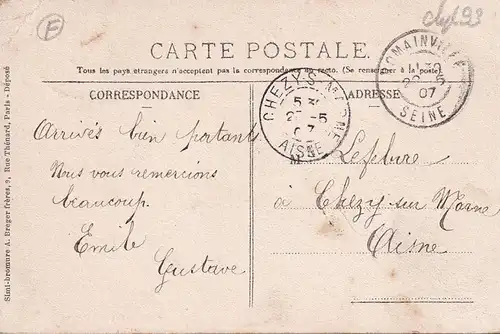 F
CARTE POSTALE.
Tous les pays étrangers n'acceptent pas la correspondance au recto. (Se renseigner à la poste)
CORRESPONDANCE
ADRESSE
Arrivés bien portants
Nous vous remercions
beaucoup.
Emile
Gustave
Lefebvre
à Chezy-sur Marne
Aisne
CHEZY-S-MARNE
5
07
AISNE
ROMAINVILLE
5
07
SEINE
Simi-bromure A. Breger Frères, 9, Rue Thénard, Paris - Déposé